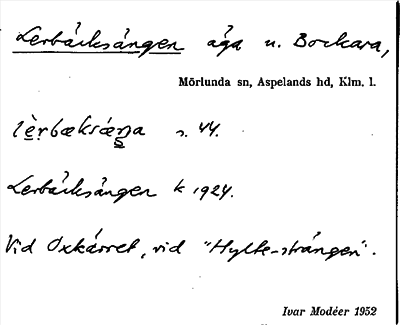 Lerbäcksängen äga u. Bockara,
Mörlunda sn, Aspelands hd, Klm. l.
s. 44.
Lerbäcksängen k 1924.
Vid Oxkärret, vid "Hylte-strängen".
Ivar Modéer 1952